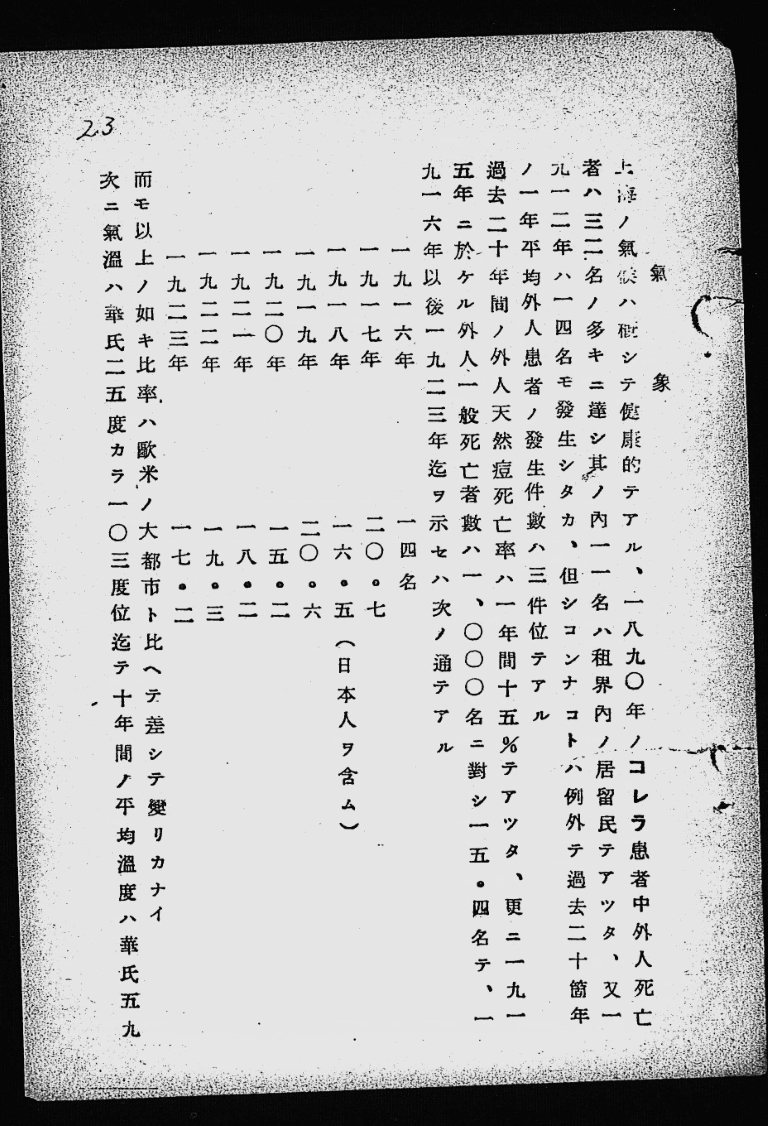 23
氣象
上海ノ氣候ハ概シテ健康的テアル、一八九〇年ノコレラ患者中外人死亡
者ハ三二名ノ多キニ達シ其ノ內一一名ハ租界內ノ居留民テアツタ、又一
九一二年ハ一四名モ發生シタカ、但シコンナコトハ例外テ過去二十箇年
ノ一年平均外人患者ノ發生件數ハ三件位テアル
過去二十年間ノ外人天然痘死亡率ハ一年間十五%テアツタ、更ニ一九一
五年ニ於ケル外人一般死亡者數ハ一、〇〇〇名ニ對シ一五・四名テ、一
九一六年以後一九二三年迄ヲ示セハ次ノ通テアル
一九一六年 一四名
一九一七年 二〇・七
一九一八年 一六・五(日本人ヲ含ム)
一九一九年 二〇・六
一九二〇年 一五・二
一九二一年 一八・二
一九二二年 一九・三
一九二三年 一七・二
而モ以上ノ如キ比率ハ歐米ノ大都市ト比ヘテ差シテ變リカナイ
次ニ氣溫ハ華氏二五度カラ一〇三度位迄テ十年間ノ平均溫度ハ華氏五九